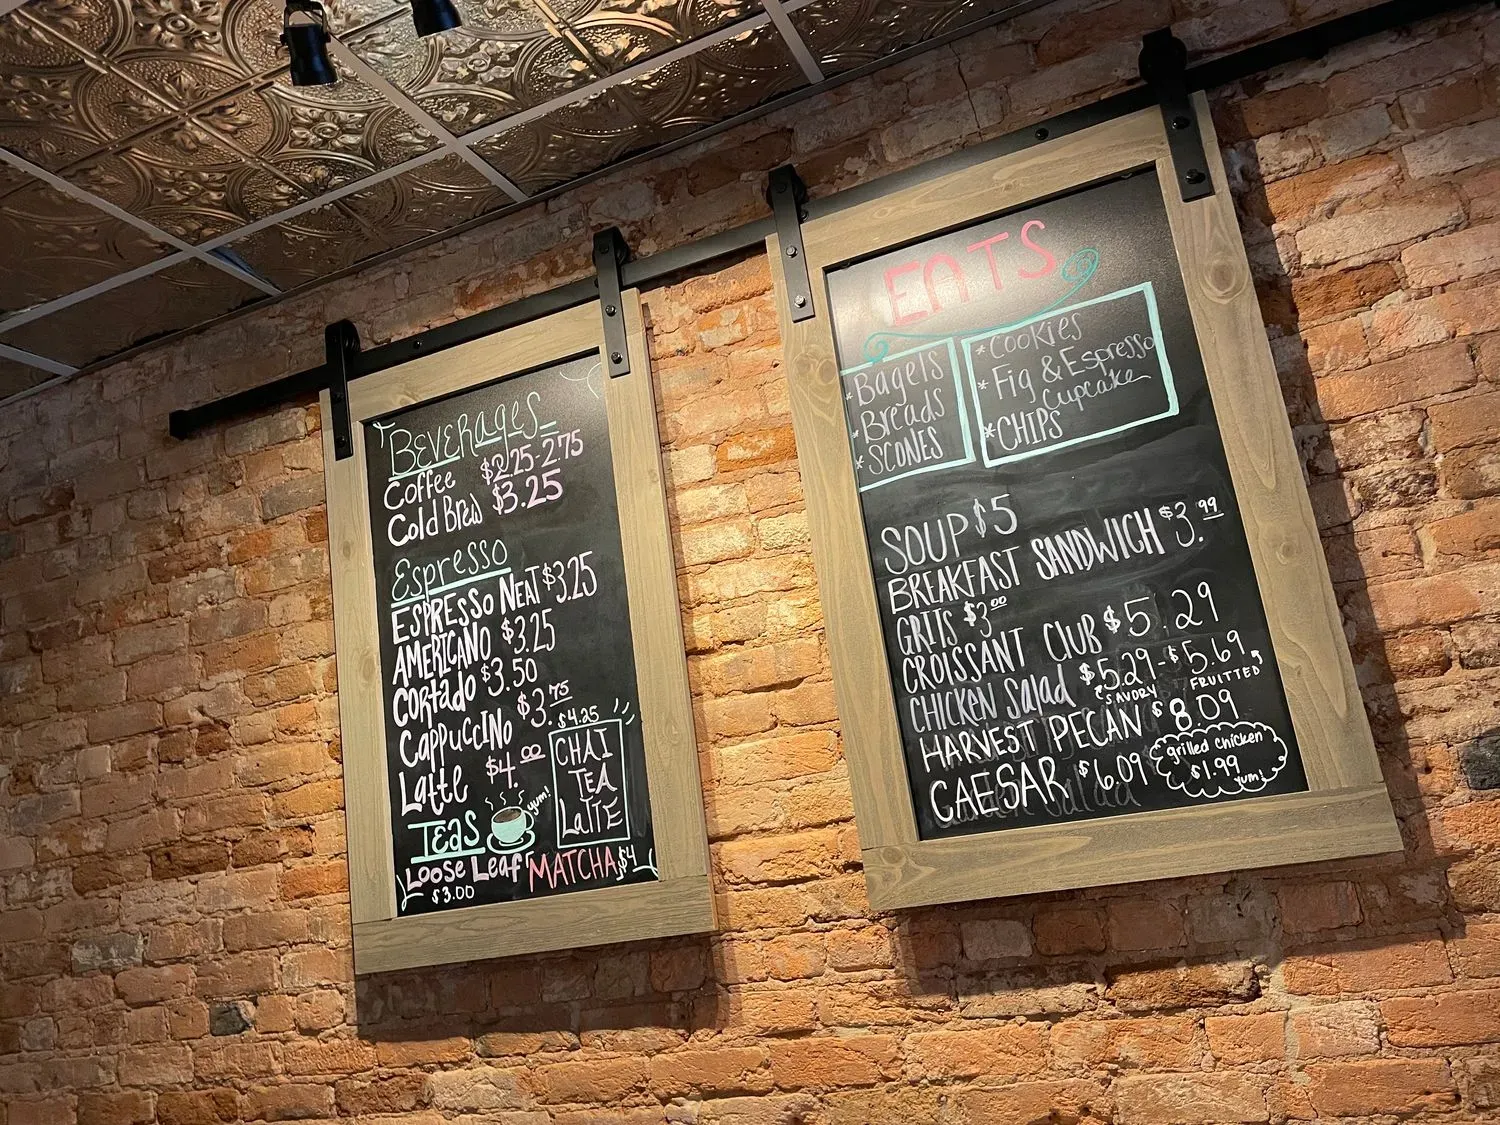 BEVERAGES
Coffee $2.25-2.75
Cold Brew $3.25
Espresso
ESPRESSO NEAT $3.25
AMERICANO $3.25
CORTADO $3.50
CAPPUCCINO $3.75
LATTE $4.00
$4.25
CHAI
TEA
LATTE
TEAS
yum!
Loose Leaf
$3.00
MATCHA $4
EATS
* Bagels
* Breads
* SCONES
* COOKIES
* Fig & Espresso
Cupcake
* CHIPS
SOUP $5
BREAKFAST SANDWICH $3.99
GRITS $3.00
CROISSANT CLUB $5.29
CHICKEN Salad $5.29-$5.69
SAVORY FRUITTED
HARVEST PECAN $8.09
CAESAR $6.09
grilled chicken
$1.99
yum!